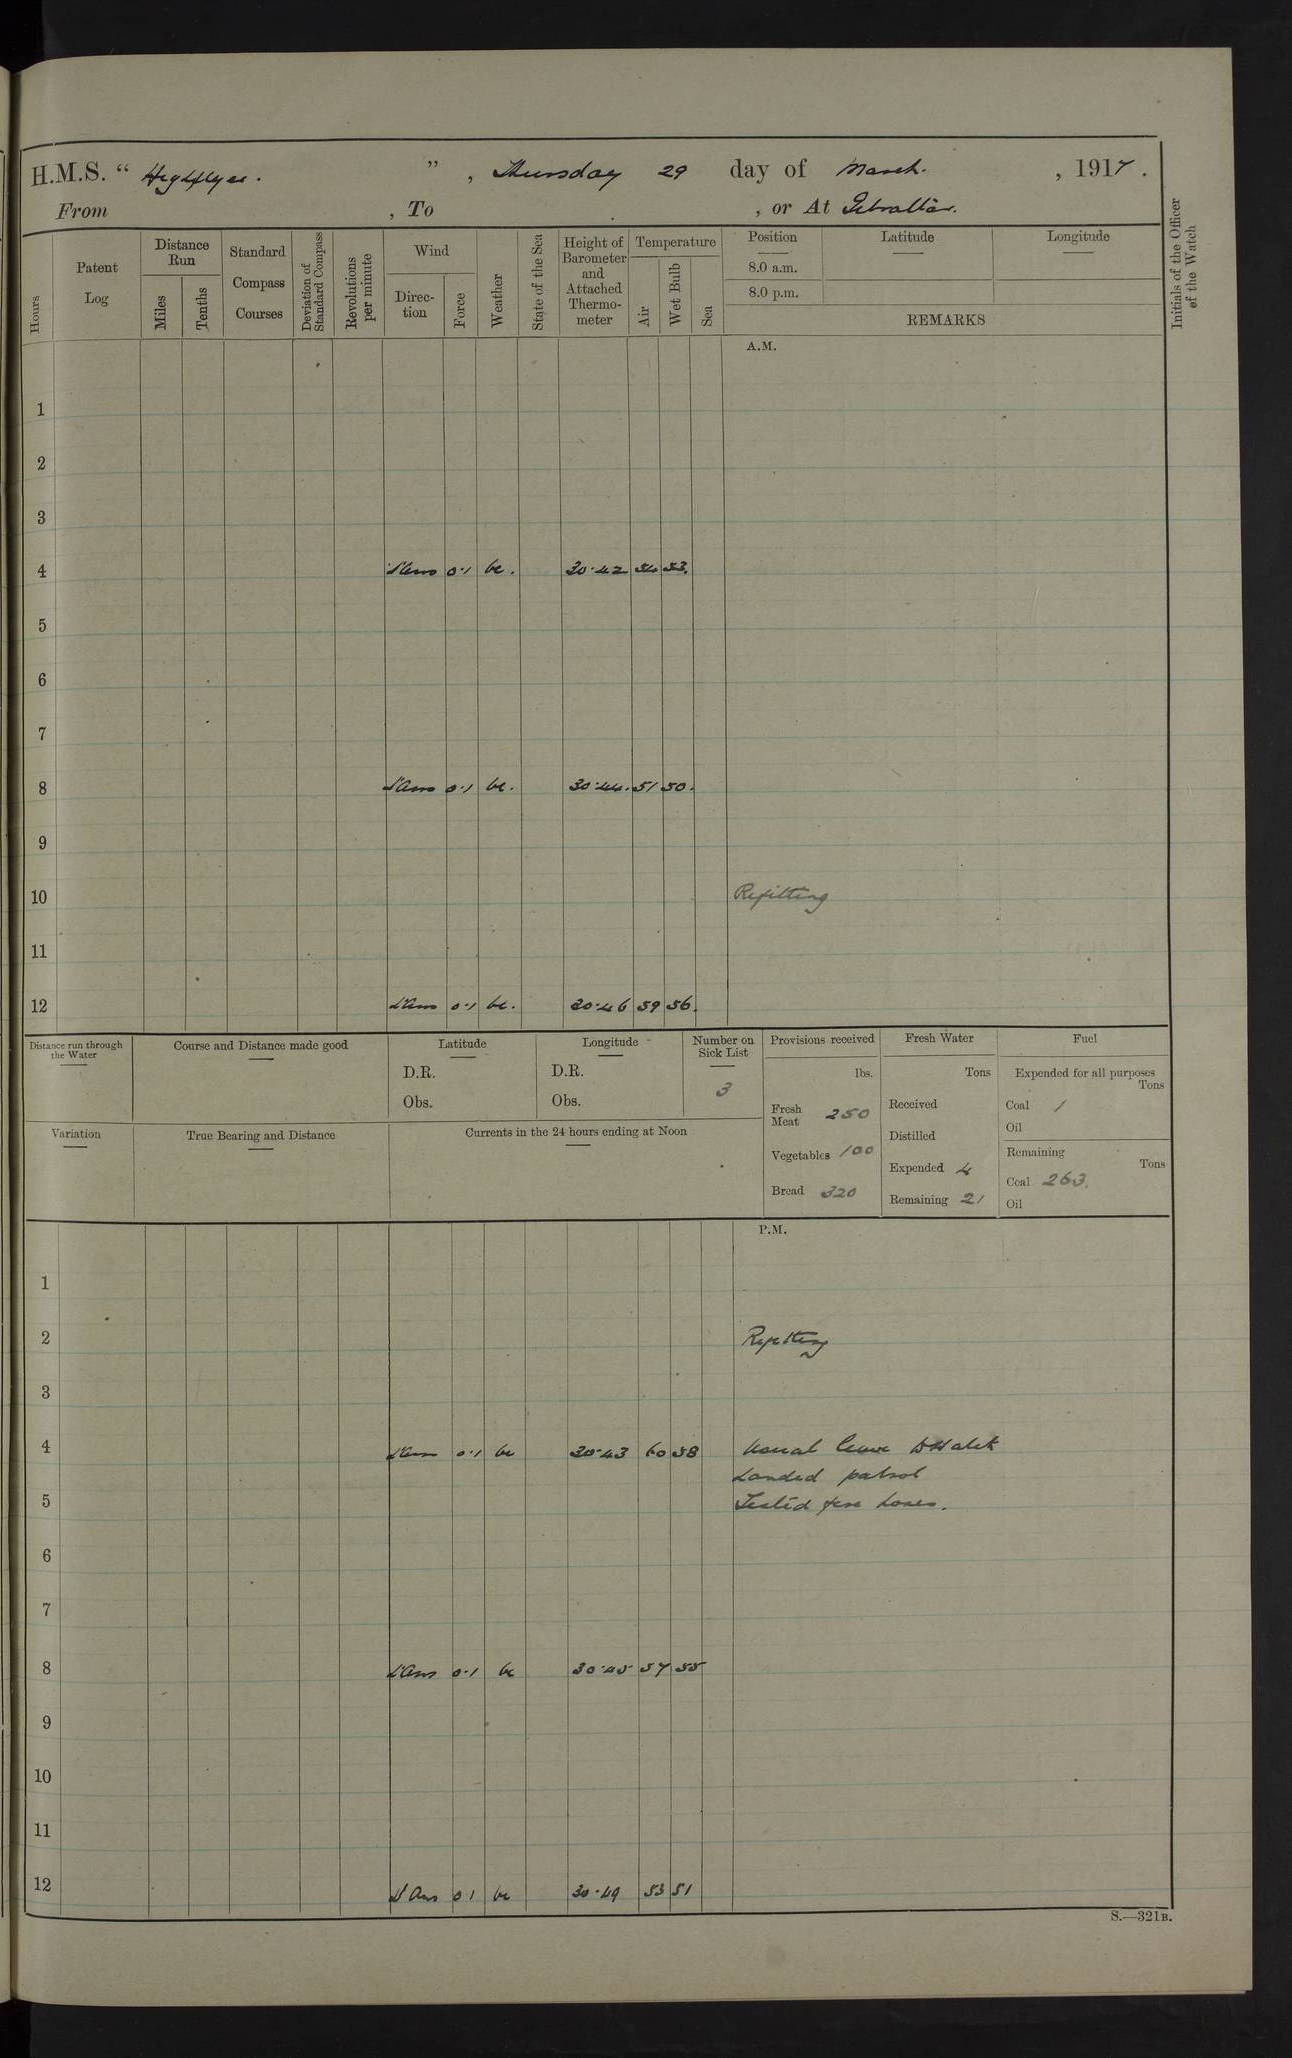 H.M.S. “ Highflyer. ” , Thursday 29 day of March. , 1917 .
From , To , or At Gibraltar.
Hours
Patent Log
Distance Run
Miles
Tenths
Standard Compass Courses
Deviation of Standard Compass
Revolutions per minute
Wind
Direc-tion
Force
Weather
State of the Sea
Height of Barometer and Attached Thermo-meter
Temperature
Air
Wet Bulb
Sea
Position
8.0 a.m.
8.0 p.m.
Latitude
Longitude
REMARKS
Initials of the Officer of the Watch
A.M.
1
2
3
4 0·1 bc. 30·42 54 53.
5
6
7
8 0·1 bc. 30·44. 51 50.
9
10 Refitting
11
12 0·1 bc. 30·46 59 56.
Distance run through the Water
Course and Distance made good
Latitude
D.R.
Obs.
Longitude
D.R.
Obs.
Number on Sick List
3
Provisions received
lbs.
Fresh Meat 250
Vegetables 100
Bread 320
Fresh Water
Tons
Received
Distilled
Expended 4
Remaining 21
Fuel
Expended for all purposes
Tons
Coal 1
Oil
Remaining
Tons
Coal 263.
Oil
Variation
True Bearing and Distance
Currents in the 24 hours ending at Noon
P.M.
1
2 Refitting
3
4 0·1 bc 30·43 60 58 Usual leave
Landed patrol
5 Tested fire hoses.
6
7
8 0·1 bc 30·45 57 55
9
10
11
12 0·1 bc 30·49 53 51
S.—321B.